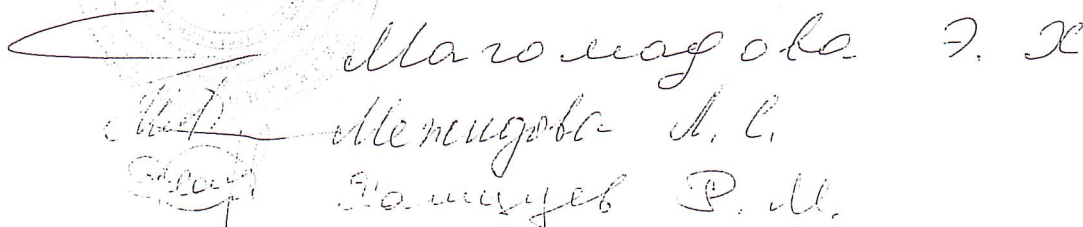 Магомадова Э. Х
Межидова Л. С.
Хамцуев Р. М.